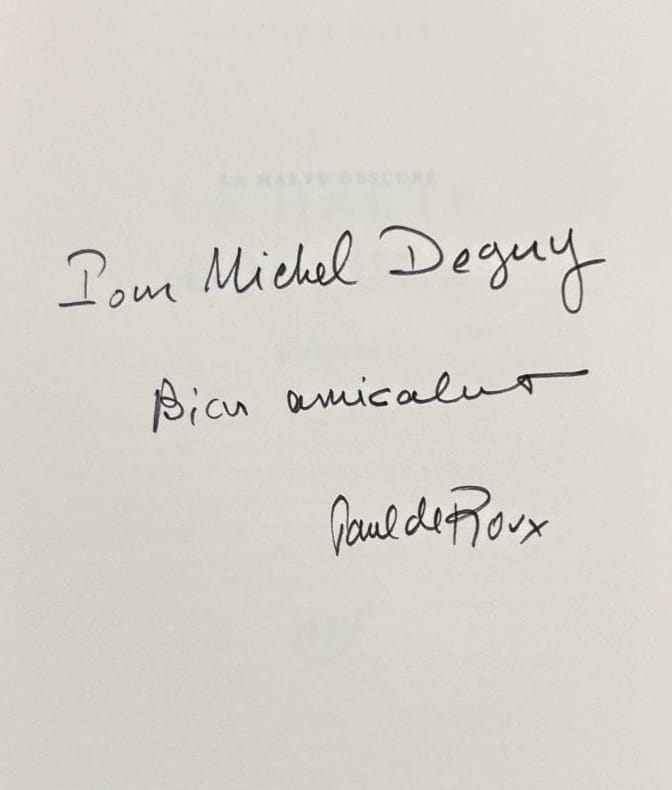 LA HALTE OBSCURE
Pour Michel Deguy
Bien amicalement
Paul de Roux